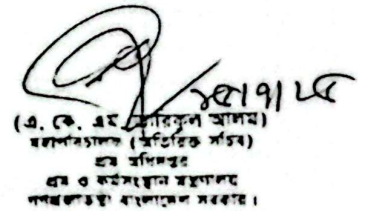 (এ. কে. এম তারিকুল আলম)
মহাপরিচালক (অতিরিক্ত সচিব)
শ্রম অধিদপ্তর
শ্রম ও কর্মসংস্থান মন্ত্রণালয়
গণপ্রজাতন্ত্রী বাংলাদেশ সরকার।